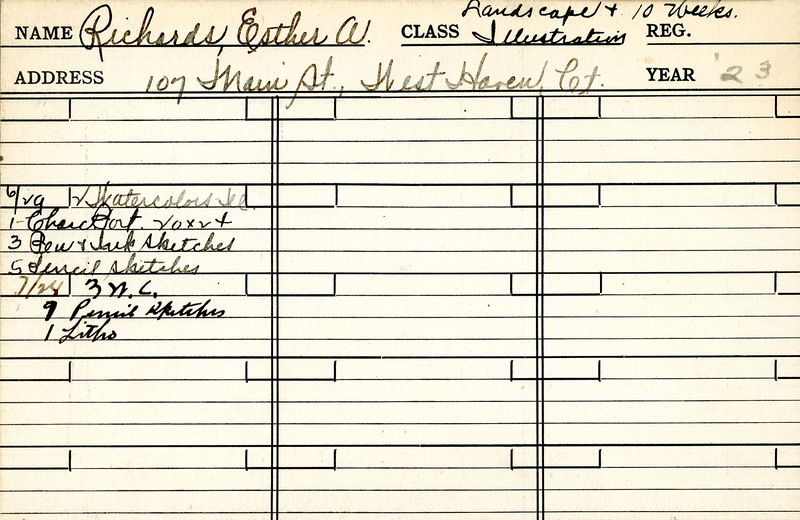 Landscape + 10 Weeks.
NAME Richards, Esther A. CLASS Illustration REG.
ADDRESS 107 Main St., West Haven, Ct. YEAR '23
6/29 2 Watercolors Ill.
1 - Charc Port. 20x24
3 Pen & Ink Sketches
5 Pencil Sketches
7/28 3 W.C.
9 Pencil Sketches
1 Litho